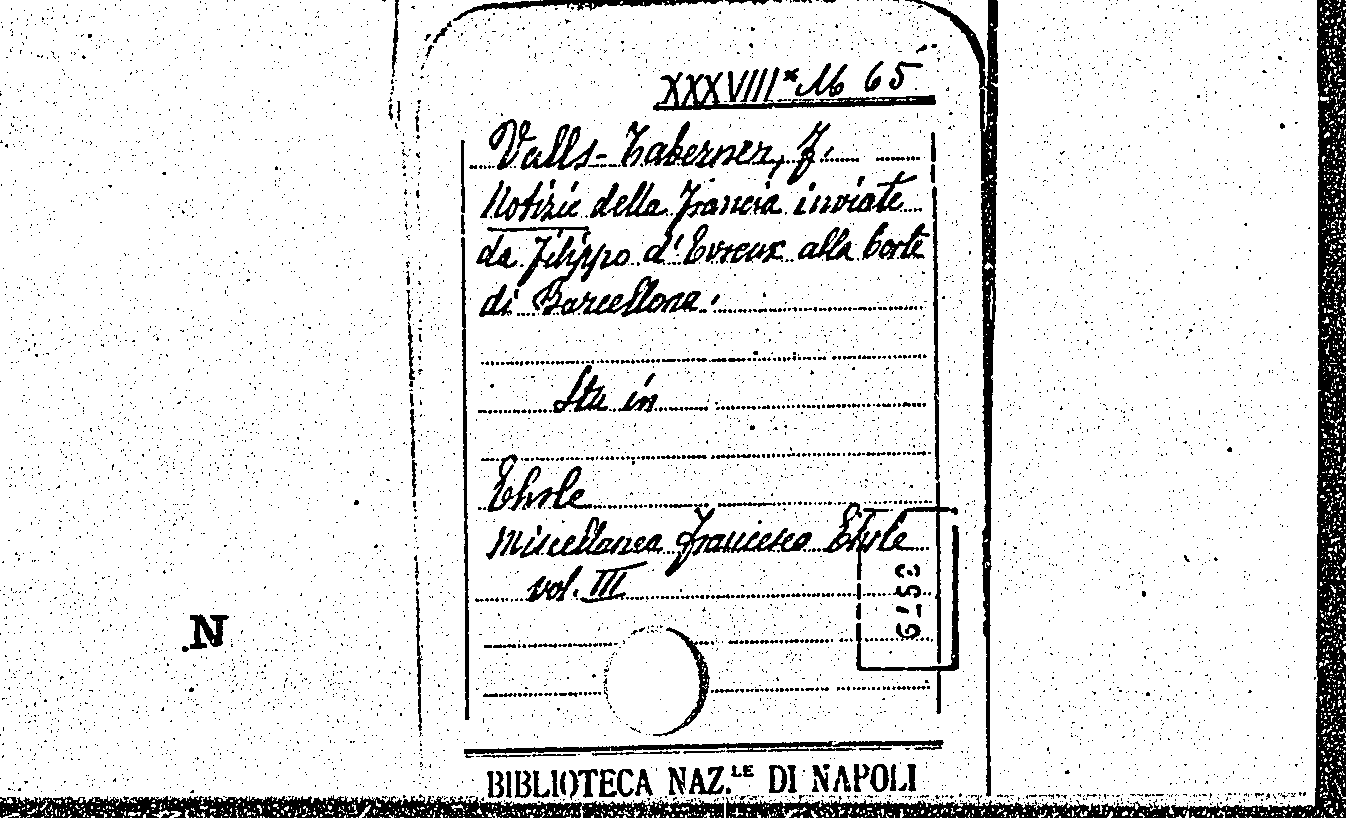 XXXVIII* M 65
Valls-Taberner, F.
Notizie della Francia inviate
da Filippo d'Evreux alla Corte
di Barcellona.
Sta in
Ehrle
Miscellanea Francesco Ehrle
vol. III
N
BIBLIOTECA NAZ.LE DI NAPOLI